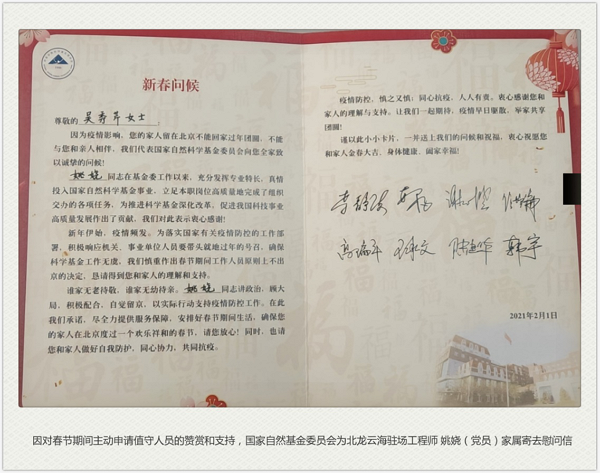 新春问候
尊敬的 女士：
因为疫情影响，您的家人留在北京不能回家过年团圆，不能
与您和亲人相伴，我们代表国家自然科学基金委员会向您全家致
以诚挚的问候！
姚娆 同志在基金委工作以来，充分发挥专业特长，真情
投入国家自然科学基金事业，立足本职岗位高质量地完成了组织
交办的各项任务，为推进科学基金深化改革、促进我国科技事业
高质量发展作出了贡献，我们对此表示衷心感谢！
新年伊始，疫情频发。为落实国家有关疫情防控的工作部
署，积极响应机关、事业单位人员要带头就地过年的号召，确保
科学基金工作无虞，我们慎重作出春节期间工作人员原则上不出
京的决定，恳请得到您和家人的理解和支持。
谁家无老待敬，谁家无幼待亲。姚娆 同志讲政治，顾大
局，积极配合，自觉留京，以实际行动支持疫情防控工作。在此
我们承诺，尽全力提供服务保障，安排好春节期间生活，确保您
的家人在北京度过一个欢乐祥和的春节，请您放心！同时，也请
您和家人做好自我防护，同心协力，共同抗疫。
疫情防控，慎之又慎；同心抗疫，人人有责。衷心感谢您和
家人的理解与支持。让我们一起期待，疫情早日驱散，举家共享
团圆！
谨以此小小卡片，一并送上我们的问候和祝福，衷心祝愿您
和家人金春大吉，身体健康，阖家幸福！
韩宇
2021年2月1日
因对春节期间主动申请值守人员的赞赏和支持，国家自然基金委员会为北龙云海驻场工程师 姚娆（党员）家属寄去慰问信